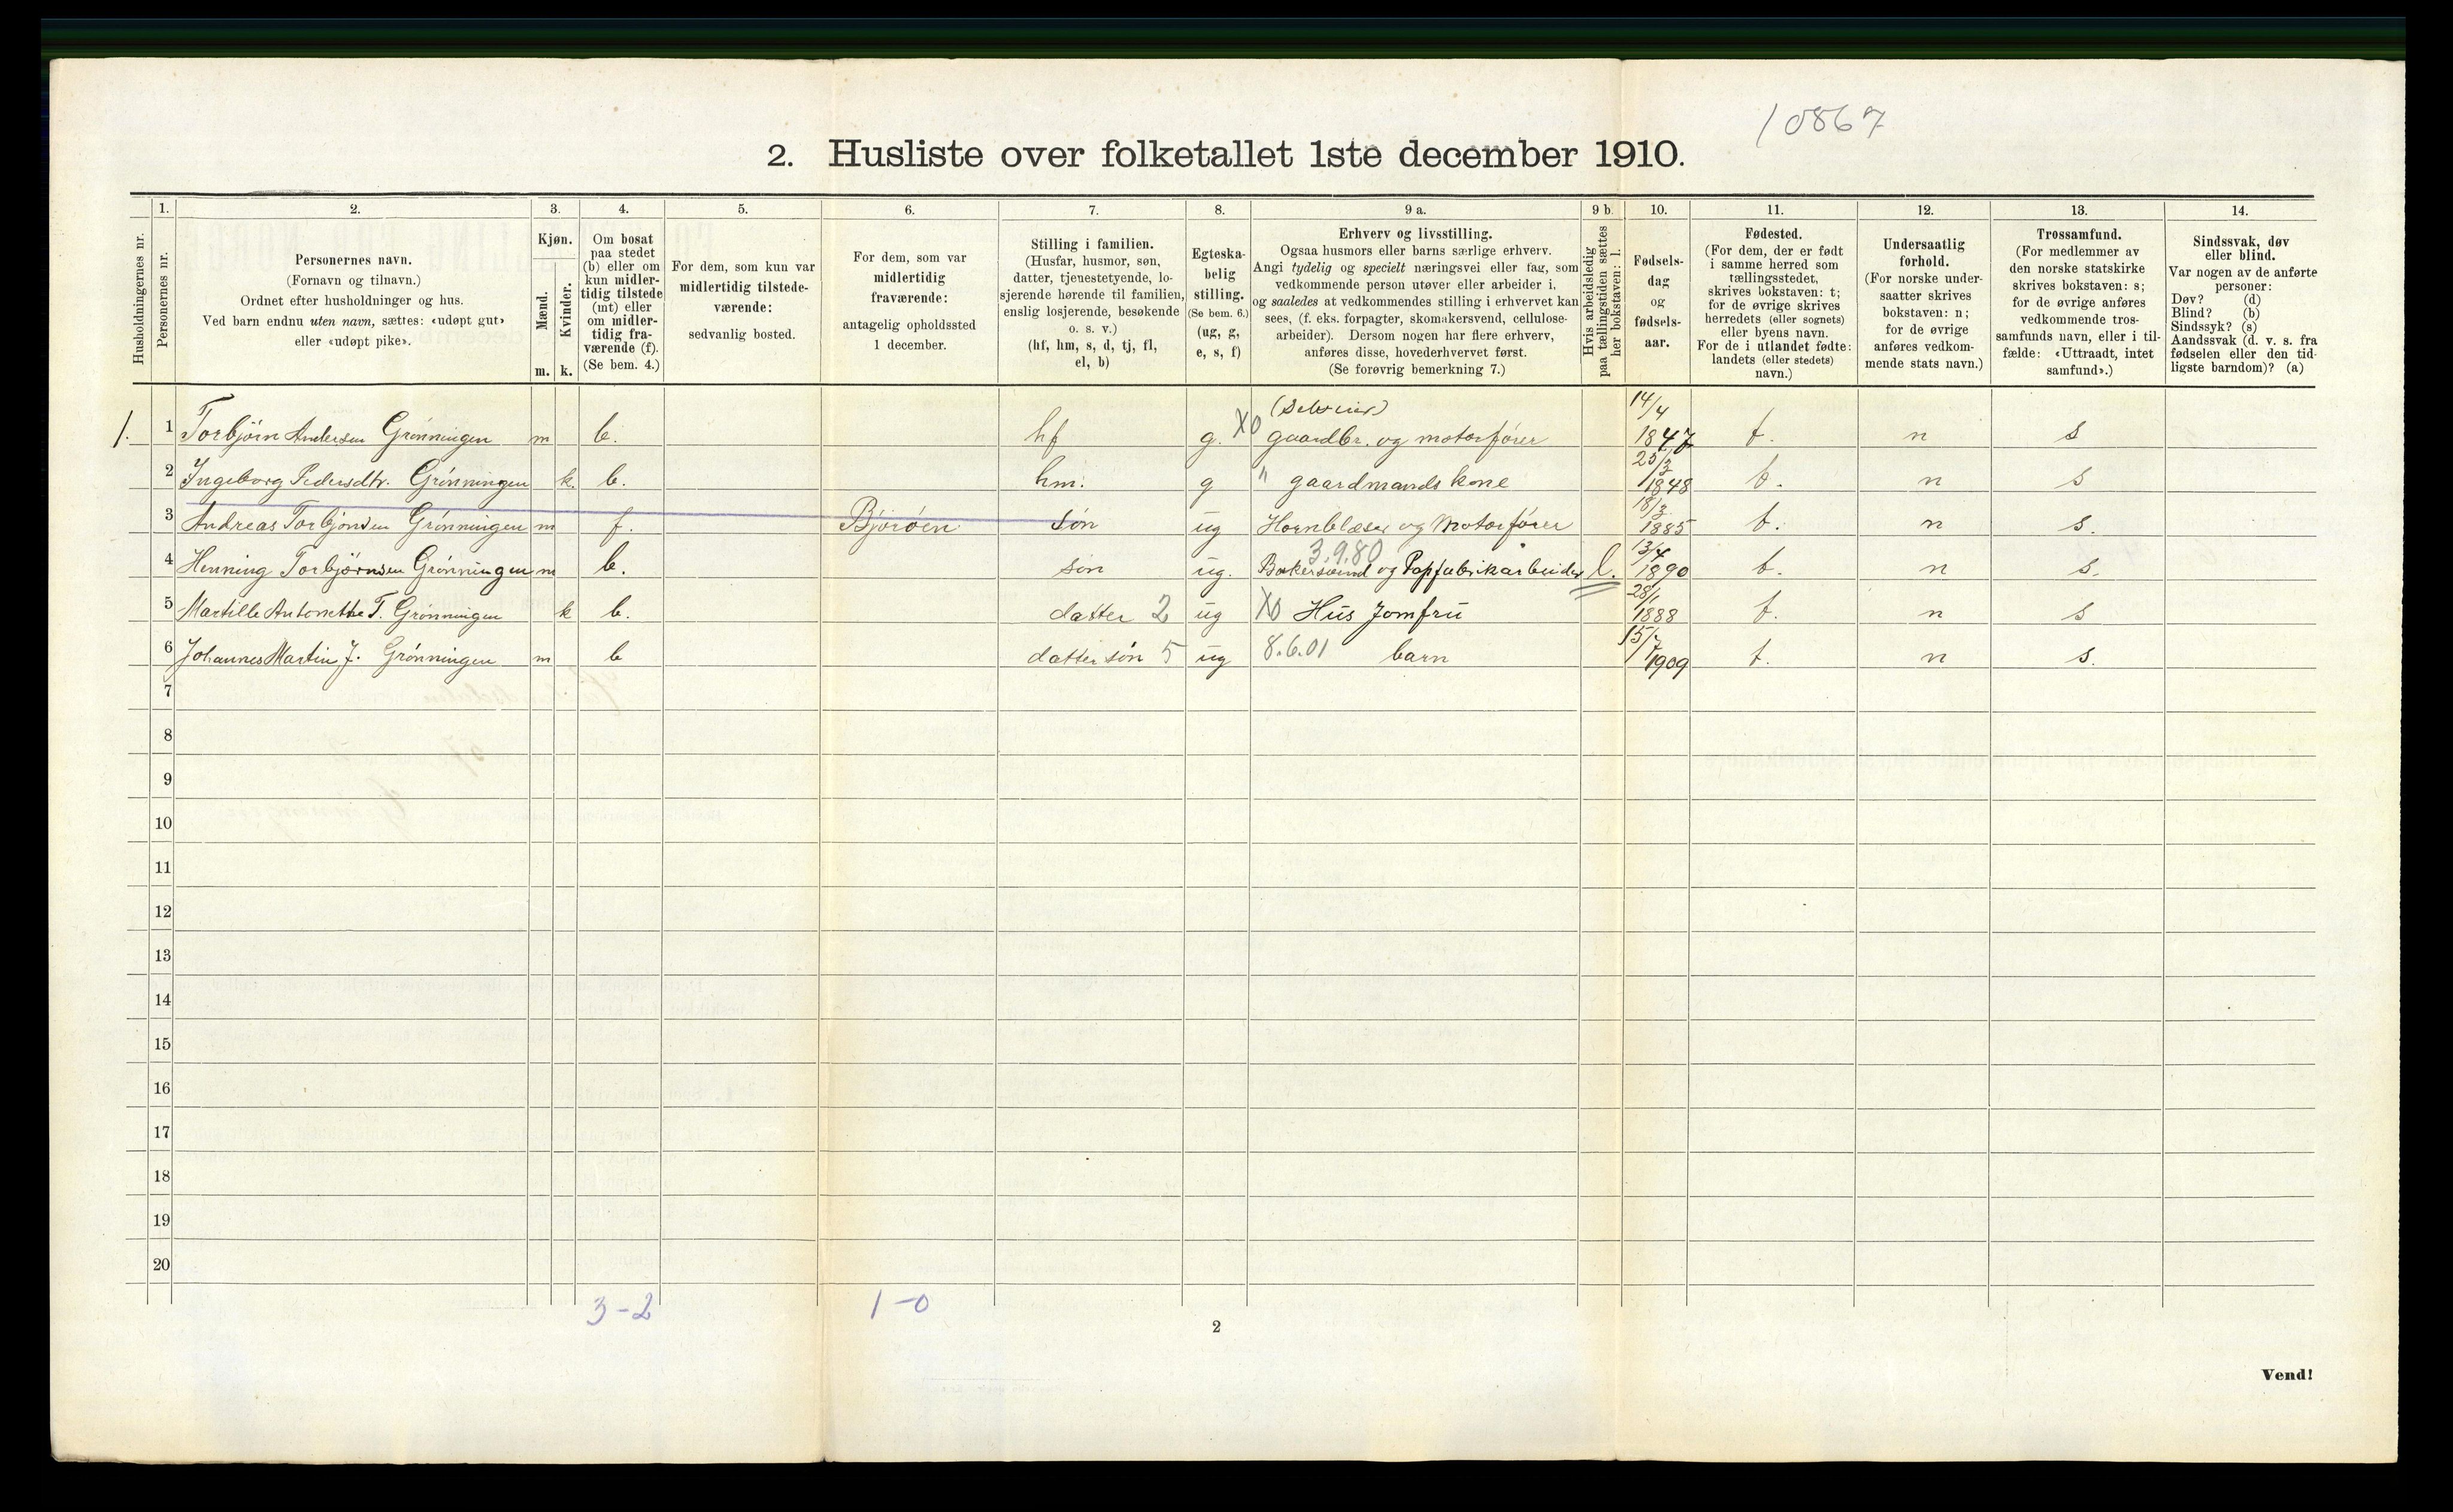 10867
2. Husliste over folketallet 1ste december 1910.
Husholdningernes nr.
1.
Personernes nr.
2.
Personernes navn.
(Fornavn og tilnavn.)
Ordnet efter husholdninger og hus.
Ved barn endnu uten navn, sættes: «udøpt gut»
eller «udøpt pike».
3.
Kjøn.
Mænd.
Kvinder.
m. k.
4.
Om bosat
paa stedet
(b) eller om
kun midler-
tidig tilstede
(mt) eller
om midler-
tidig fra-
værende (f).
(Se bem. 4.)
5.
For dem, som kun var
midlertidig tilstede-
værende:
sedvanlig bosted.
6.
For dem, som var
midlertidig
fraværende:
antagelig opholdssted
1 december.
7.
Stilling i familien.
(Husfar, husmor, søn,
datter, tjenestetyende, lo-
sjerende hørende til familien,
enslig losjerende, besøkende
o. s. v.)
(hf, hm, s, d, tj, fl,
el, b)
8.
Egteska-
belig
stilling.
(Se bem. 6.)
(ug, g,
e, s, f)
9 a.
Erhverv og livsstilling.
Ogsaa husmors eller barns særlige erhverv.
Angi tydelig og specielt næringsvei eller fag, som
vedkommende person utøver eller arbeider i,
og saaledes at vedkommendes stilling i erhvervet kan
sees, (f. eks. forpagter, skomakersvend, cellulose-
arbeider). Dersom nogen har flere erhverv,
anføres disse, hovederhvervet først.
(Se forøvrig bemerkning 7.)
9 b.
Hvis arbeidsledig
paa tællingstiden sættes
her bokstaven: l.
10.
Fødsels-
dag
og
fødsels-
aar.
11.
Fødested.
(For dem, der er født
i samme herred som
tællingsstedet,
skrives bokstaven: t;
for de øvrige skrives
herredets (eller sognets)
eller byens navn.
For de i utlandet fødte:
landets (eller stedets)
navn.)
12.
Undersaatlig
forhold.
(For norske under-
saatter skrives
bokstaven: n;
for de øvrige
anføres vedkom-
mende stats navn.)
13.
Trossamfund.
(For medlemmer av
den norske statskirke
skrives bokstaven: s;
for de øvrige anføres
vedkommende tros-
samfunds navn, eller i til-
fælde: «Uttraadt, intet
samfund».)
14.
Sindssvak, døv
eller blind.
Var nogen av de anførte
personer:
Døv? (d)
Blind? (b)
Sindssyk? (s)
Aandssvak (d. v. s. fra
fødselen eller den tid-
ligste barndom)? (a)
(Selveier) 14/4
1. 1 Torbjörn Andersen Grönningen m b. hf g. X0 gaardbr. og motorfører 1847 t. n s
2 Ingeborg Pedersdtr. Grönningen k. b. hm. g " gaardmands kone 25/3 1848 t. n s
3 Andreas Torbjönsen Grönningen m f. Björöen søn ug Hornblæser og Motorfører 18/3 1885 t. n s.
3.9.80
4 Henning Torbjörnsen Grönningen m b. søn ug. Bakersvend og Papfabrikarbeider l. 13/4 1890 t. n s.
5 Martille Antonette T. Grönningen k b. datter 2 ug X0 Hus Jomfru 28/1 1888 t. n s
6 Johannes Martin J. Grönningen m b dattersön 5 ug 8.6.01 barn 15/7 1909 t. n s.
7
8
9
10
11
12
13
14
15
16
17
18
19
20
3-2 1-0
2
Vend!